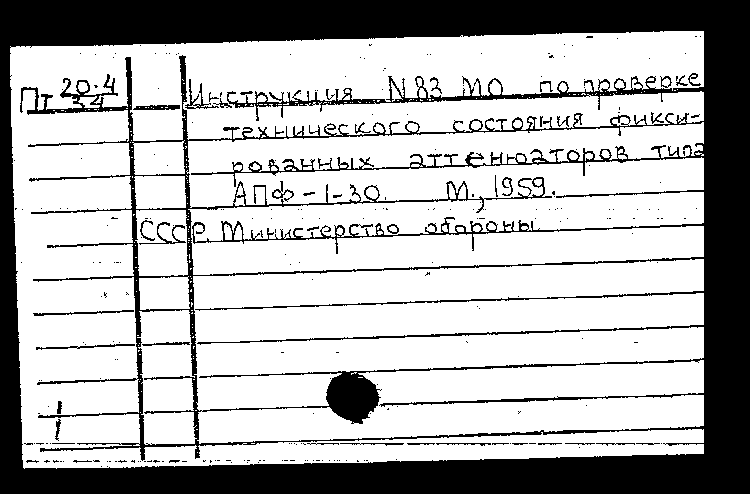 Пт 20.4/34 Инструкция N 83 МО по проверке
технического состояния фикси-
рованных аттенюаторов типа
АПФ-1-30. М., 1959.
СССР. Министерство обороны
1